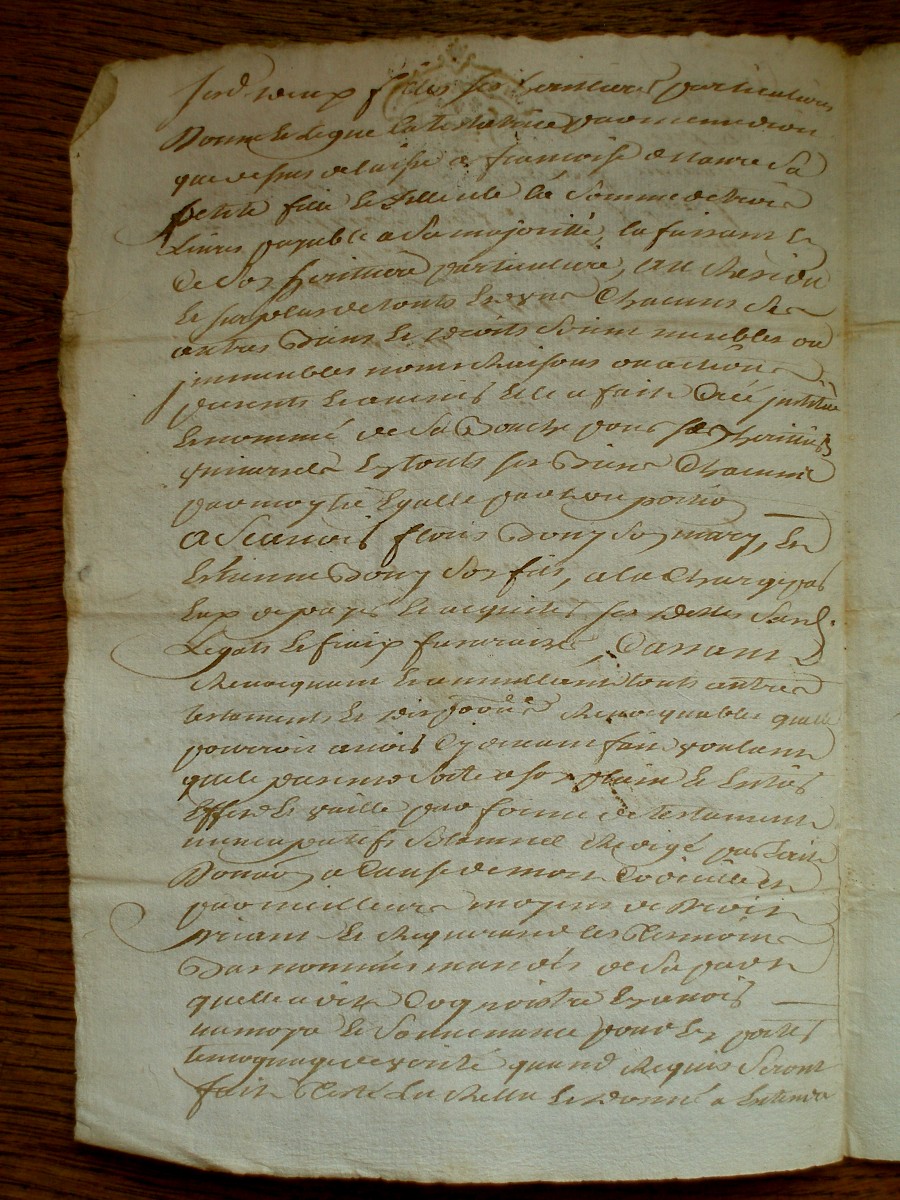 sesd. deux filles ses heritieres particulieres
Donne et legue la testatrice par mesme droit
que dessus delaisse a francoise sa
petite fille et filleule la somme de trois
livres payable a sa majorité, la faisant
de ses heritiere particuliere, et au residu
le surplus de touts et uns chacuns ses
autres biens et droits soint meubles ou
immeubles noms raisons ou actions
presents et advenir elle a faict créé institué
et nommé de sa bouche pour ses heritiers
universels en touts ses biens chacun
par moytié egalle part ou portion
a françois Dony son mary, et
Estienne Dony son fils, a la charge par
eux de payer et acquiter ses dettes
legats et fraix funeraires, Cassant
revoquant et annullant touts autres
testaments et disposons revoquables quelle
pourroit avoir cy devant fait voulant
que le present sorte a son plain et entier
effect et vaille par forme de testament
nuncupatifs solemnel redigé par escrit
Donaon a cause de mort Codicille et
par meilleurs moyens de droit
priant et requerant les tesmoins
bas nommés mandés de sa part
quelle a dit cognoistre et avoir
memoire et souvenance pour en porter
temognage de verité quand requis seront
fait et donné a entendre